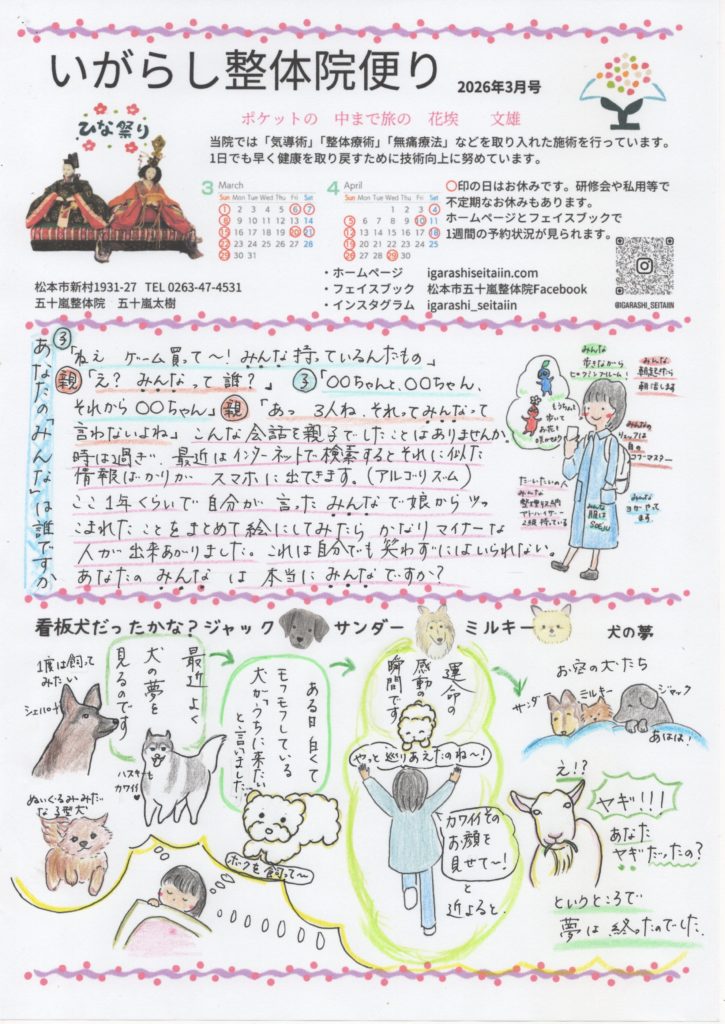 いがらし整体院便り 2026年3月号
ひな祭り
ポケットの 中まで旅の 花埃 文雄
当院では「気導術」「整体療術」「無痛療法」などを取り入れた施術を行っています。
1日でも早く健康を取り戻すために技術向上に努めています。
3 March
Sun Mon Tue Wed Thu Fri Sat
1 2 3 4 5 6 7
8 9 10 11 12 13 14
15 16 17 18 19 20 21
22 23 24 25 26 27 28
29 30 31
4 April
Sun Mon Tue Wed Thu Fri Sat
1 2 3 4
5 6 7 8 9 10 11
12 13 14 15 16 17 18
19 20 21 22 23 24 25
26 27 28 29 30
○印の日はお休みです。研修会や私用等で
不定期なお休みもあります。
ホームページとフェイスブックで
1週間の予約状況が見られます。
@IGARASHI_SEITAIIN
松本市新村1931-27 TEL 0263-47-4531
五十嵐整体院 五十嵐太樹
・ホームページ igarashiseitaiin.com
・フェイスブック 松本市五十嵐整体院Facebook
・インスタグラム igarashi_seitaiin
あなたの「みんな」は誰ですか
③「ねえ ゲーム買って〜!みんな持っているんだもの」
親「え? みんなって誰?」 ③「〇〇ちゃんと、〇〇ちゃん、
それから 〇〇ちゃん」親「あっ 3人ね、それってみんなって
言わないよね」こんな会話を親子でしたことはありませんか。
時は過ぎ、最近はインターネットで検索するとそれに似た
情報ばかりが スマホに出てきます。(アルゴリズム)
ここ1年くらいで自分が 言った みんな で娘からツッ
こまれたことをまとめて絵にしてみたら かなりマイナーな
人が出来あがりました。これは自分でも笑わずにはいられない。
あなたの みんな は 本当に みんなですか?
みんな
歩きながら
ピクミンブルーム!
もうちょっと
歩いて
お花を
咲かせよう
みんな
朝起きたら
朝活します
みんなの
リュックは
白の
コワーマスター
だいたいの
みんな
整理収納
アドバイザー
2級持っている
みんな
服は
SOEJU
みんな
ヨガやって
ます
看板犬だったかな?ジャック サンダー ミルキー 犬の夢
1度は飼って
みたい
シェパード
最近 よく
犬の夢を
見るのです
ハスキーも
カワイイ
ぬいぐるみみたい
な小型犬
ある日 白くて
モフモフしている
犬が「うちに来たい」
と、言いました…
ボクを飼って〜
運命の
感動の
瞬間です
やっと巡りあえたのね〜!
カワイイその
お顔を
見せて〜!
と
近よると、
お空の犬たち
サンダー
ミルキー
ジャック
あはは!
え!?
ヤギ!!!
あなた
ヤギだったの?
というところで
夢は終ったのでした。